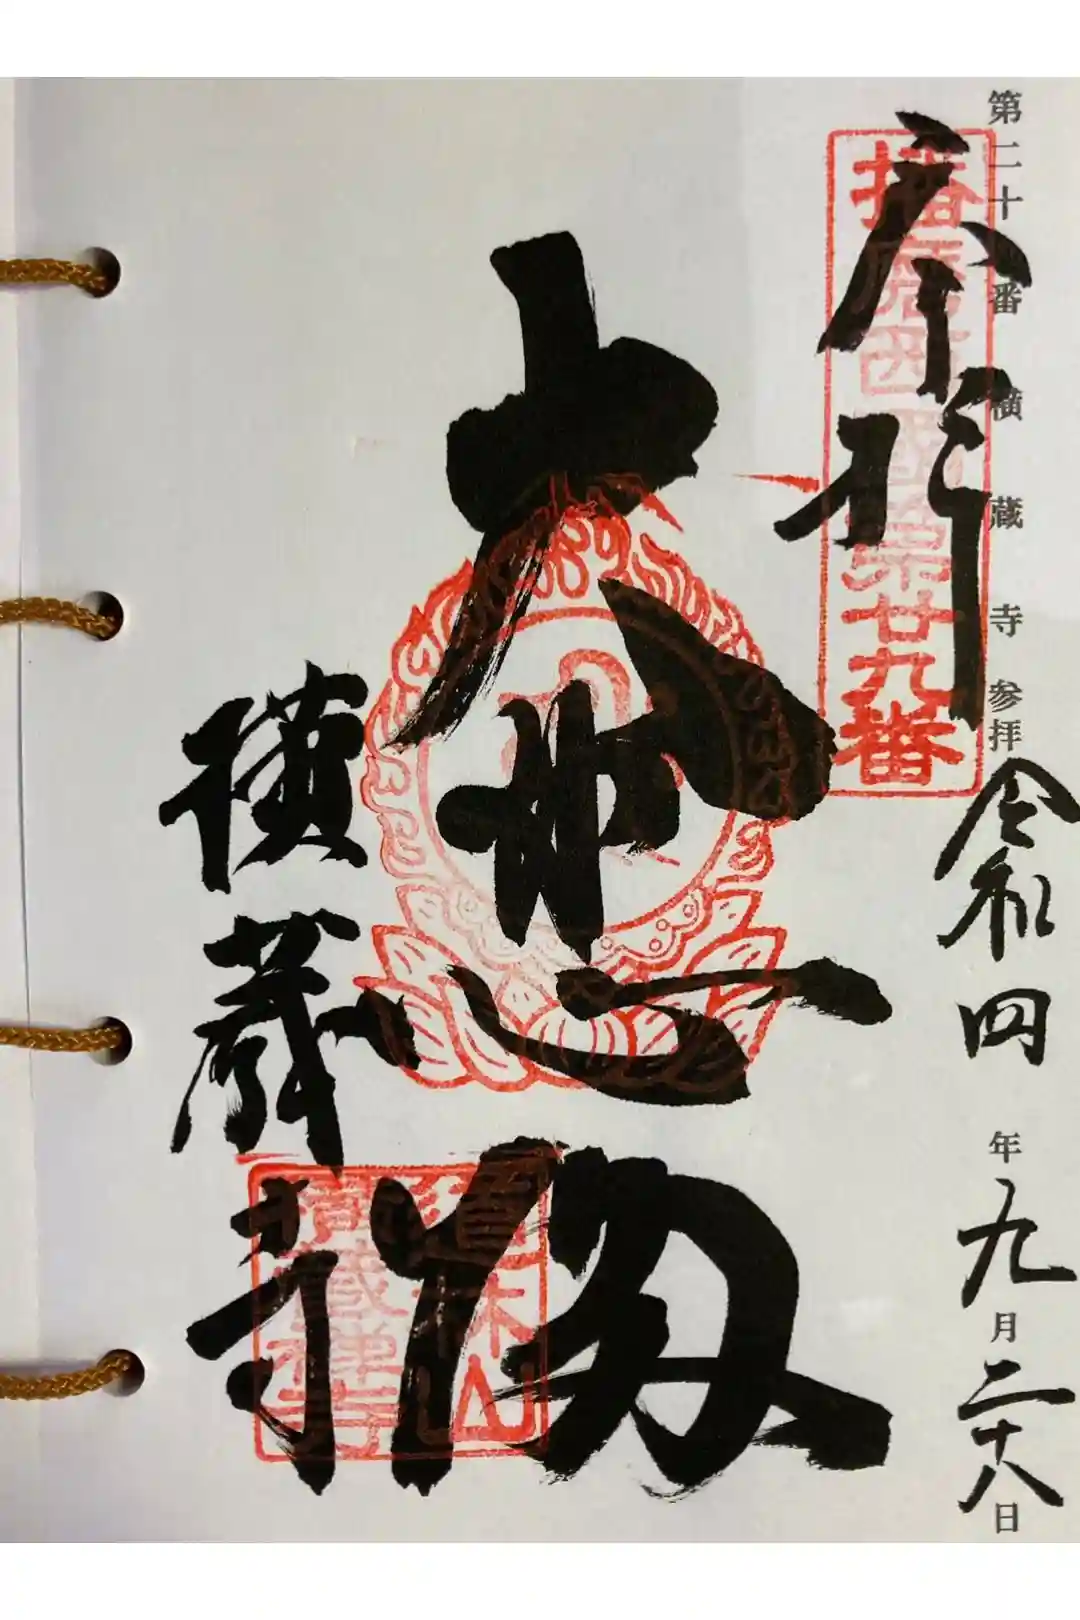 第二十九番 横蔵寺参拝 令和四年九月二十八日
奉拝
播磨西國第廿九番
大悲殿
横蔵寺
山